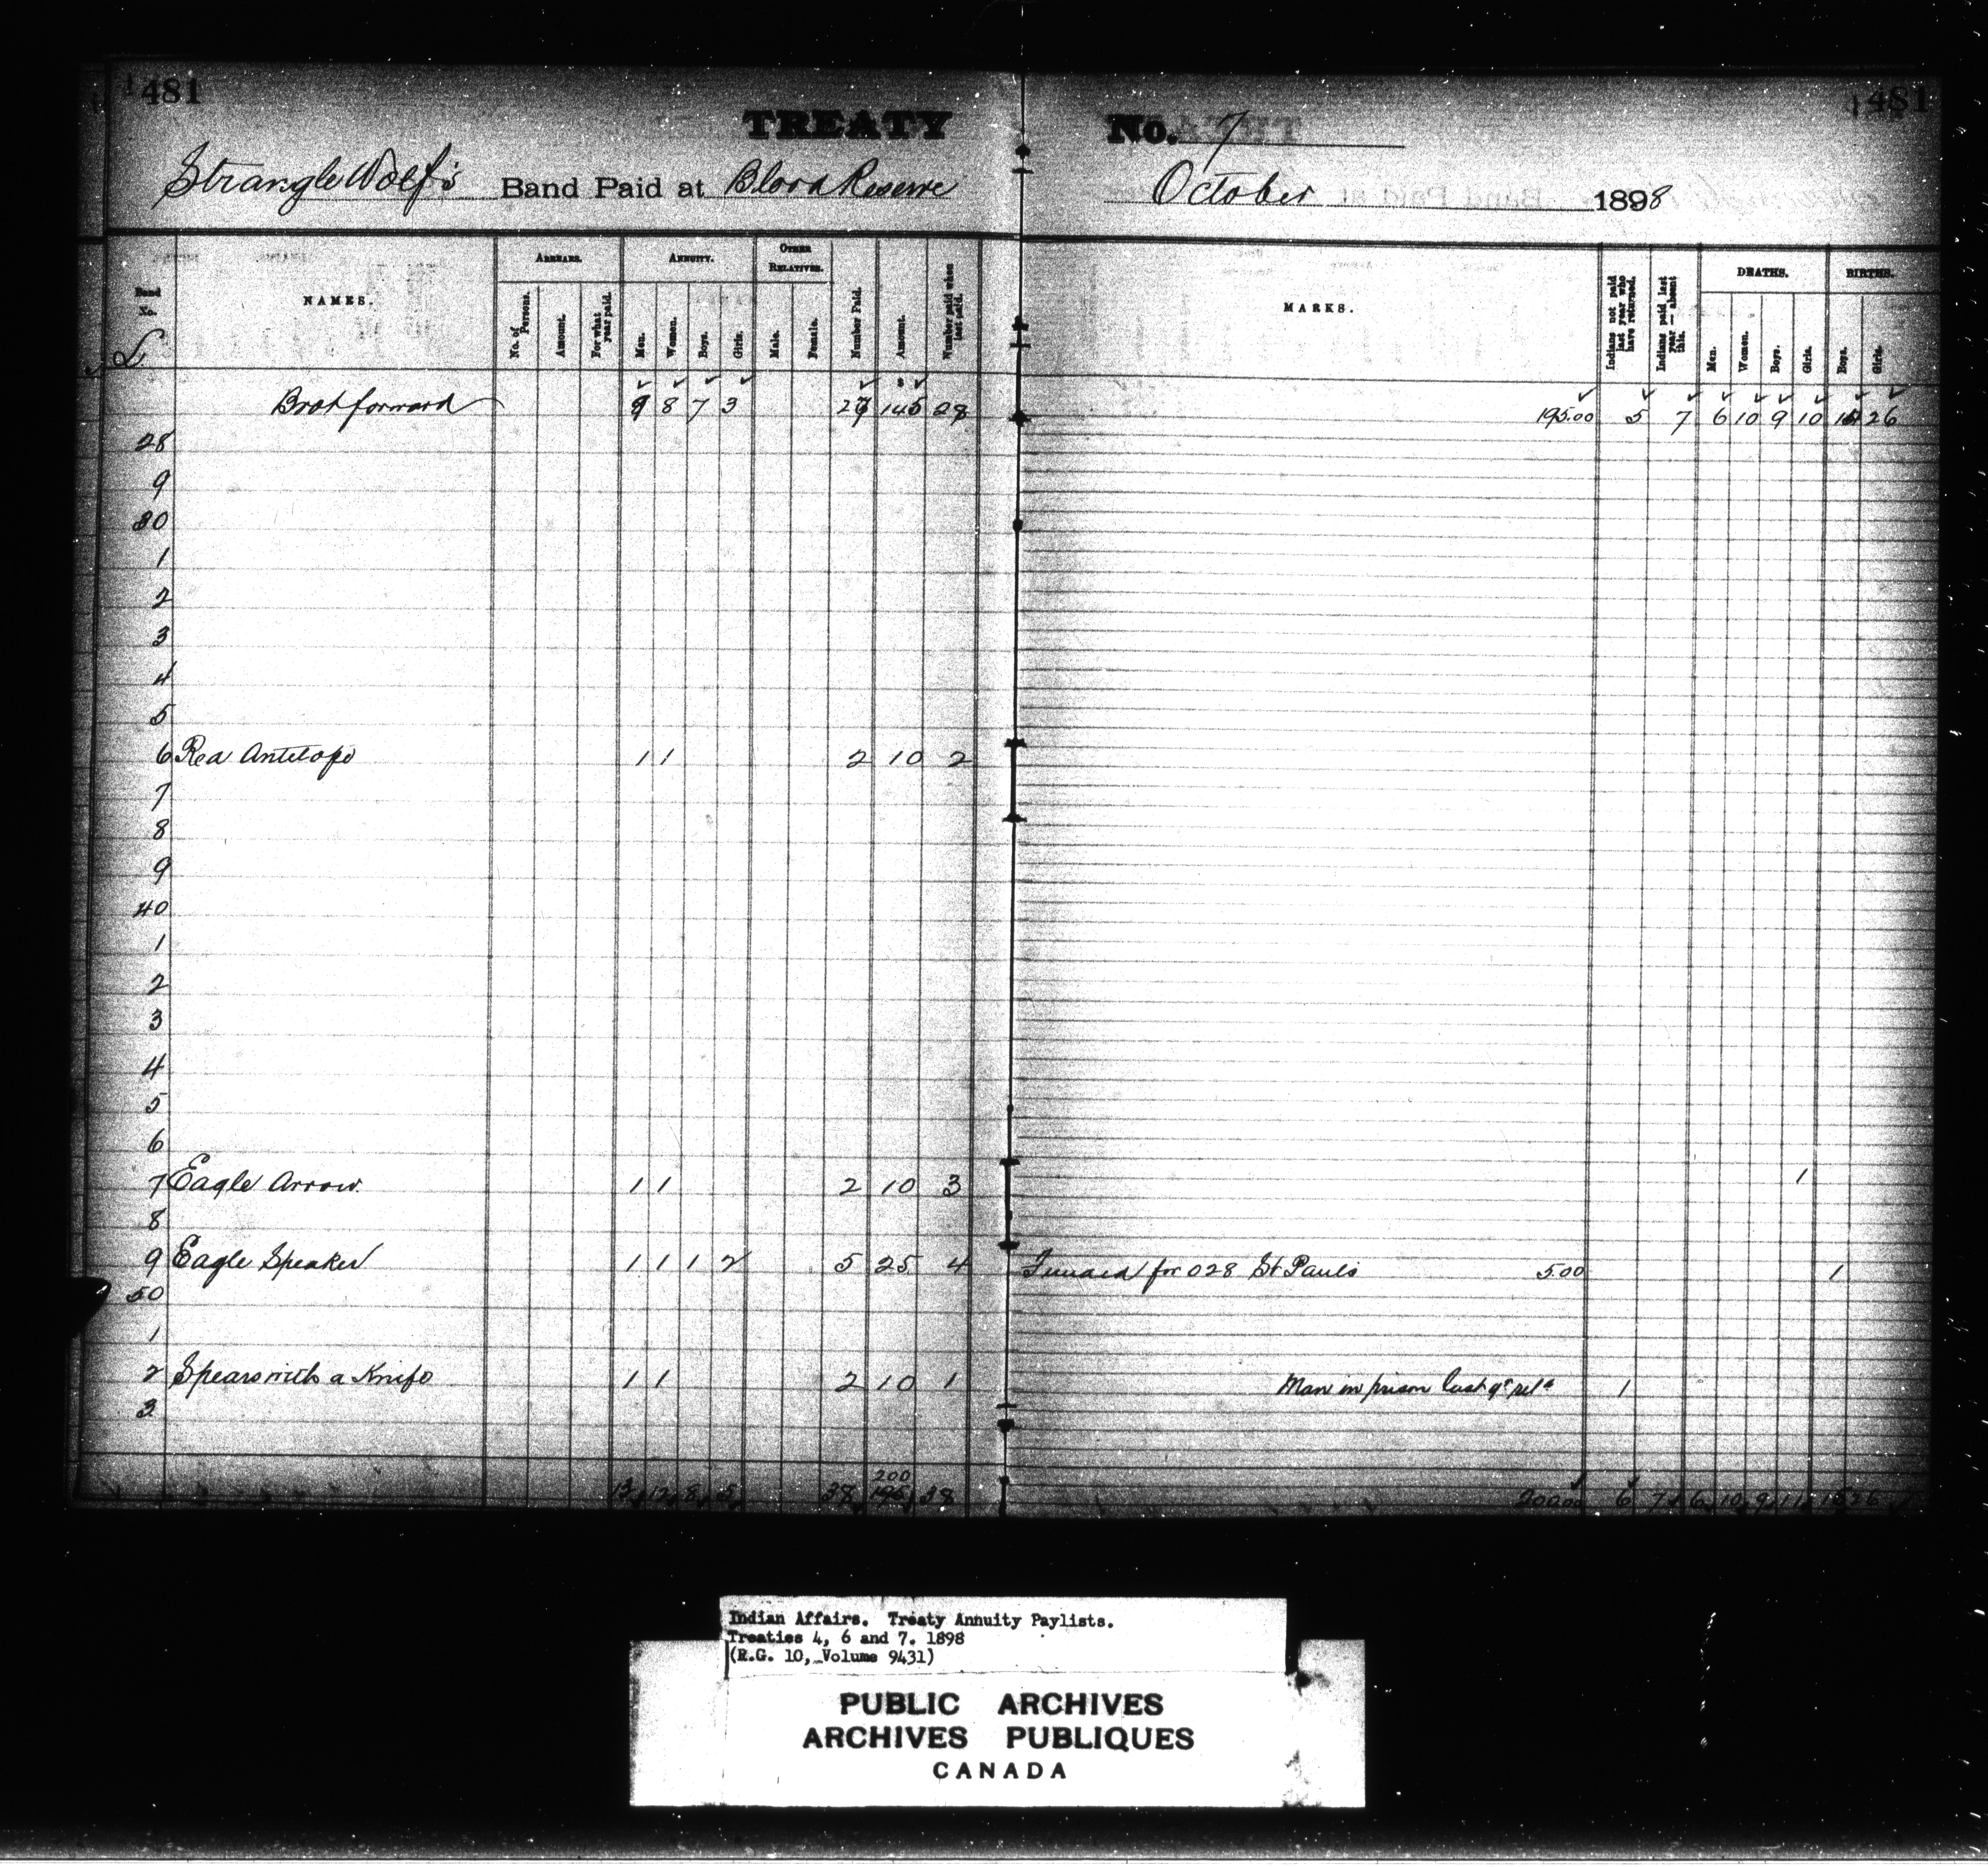 1481
1481
TREATY No. 7
Strangle Wolf's Band Paid at Blood Reserve October 1898
Band No. NAMES. ARREARS. ANNUITY. OTHER RELATIVES. Number Paid. Amount. Number paid when last paid. MARKS. Indians not paid last year who have returned. Indians paid last year — absent this. DEATHS. BIRTHS.
No. of Persons. Amount. For what year paid. Men. Women. Boys. Girls. Male. Female. Men. Women. Boys. Girls. Boys. Girls.
L
Brot forward 9 8 7 3 27 145 28 195.00 5 7 6 10 9 10 14 26
28
9
30
1
2
3
4
5
6 Red Antelope 1 1 2 10 2
7
8
9
40
1
2
3
4
5
6
7 Eagle Arrow. 1 1 2 10 3 1
8
9 Eagle Speaker 1 1 1 2 5 25 4 for 028 St Pauls 5.00 1
50
1
2 Spears with a Knife 1 1 2 10 1 Man in prison last 1
3
200
13 12 8 5 38 195 38 200.00 6 7 6 10 9 11 15 26
Indian Affairs. Treaty Annuity Paylists.
Treaties 4, 6 and 7. 1898
(R.G. 10, Volume 9431)
PUBLIC ARCHIVES
ARCHIVES PUBLIQUES
CANADA